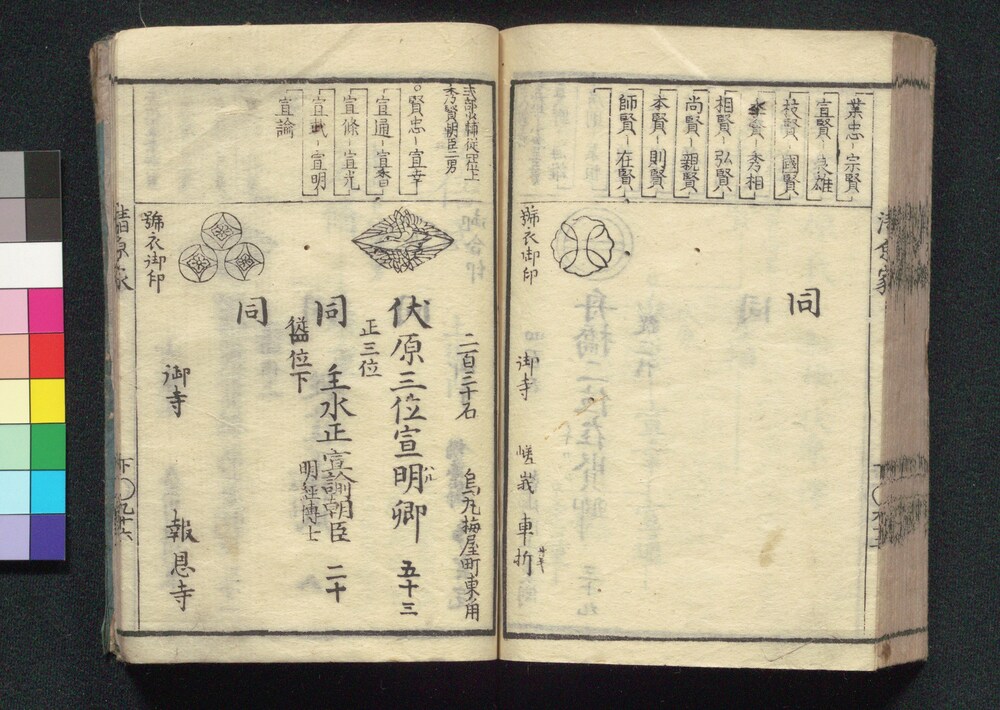 業忠 宗賢
宣賢 良雄
枝賢 國賢
秀相
相賢 弘賢
尚賢 親賢
本賢 則賢
師賢 在賢
同
號衣御印
御寺
嵯峨
車折
清原家
秀賢朝臣二男
賢忠 宣幸
宣通 宣香
宣條 宣光
宣武 宣明
宣諭
二百三十石
烏丸梅屋町東角
伏原三位宣明卿
五十三
正三位
同
主水正宣諭朝臣
二十
從四位下
明経博士
同
號衣御印
御寺
報恩寺
清原家
下〇九十六